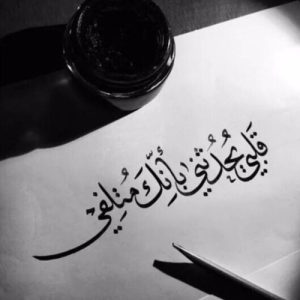 قلبي يُحدّثني بأنّكَ مُتلِفي